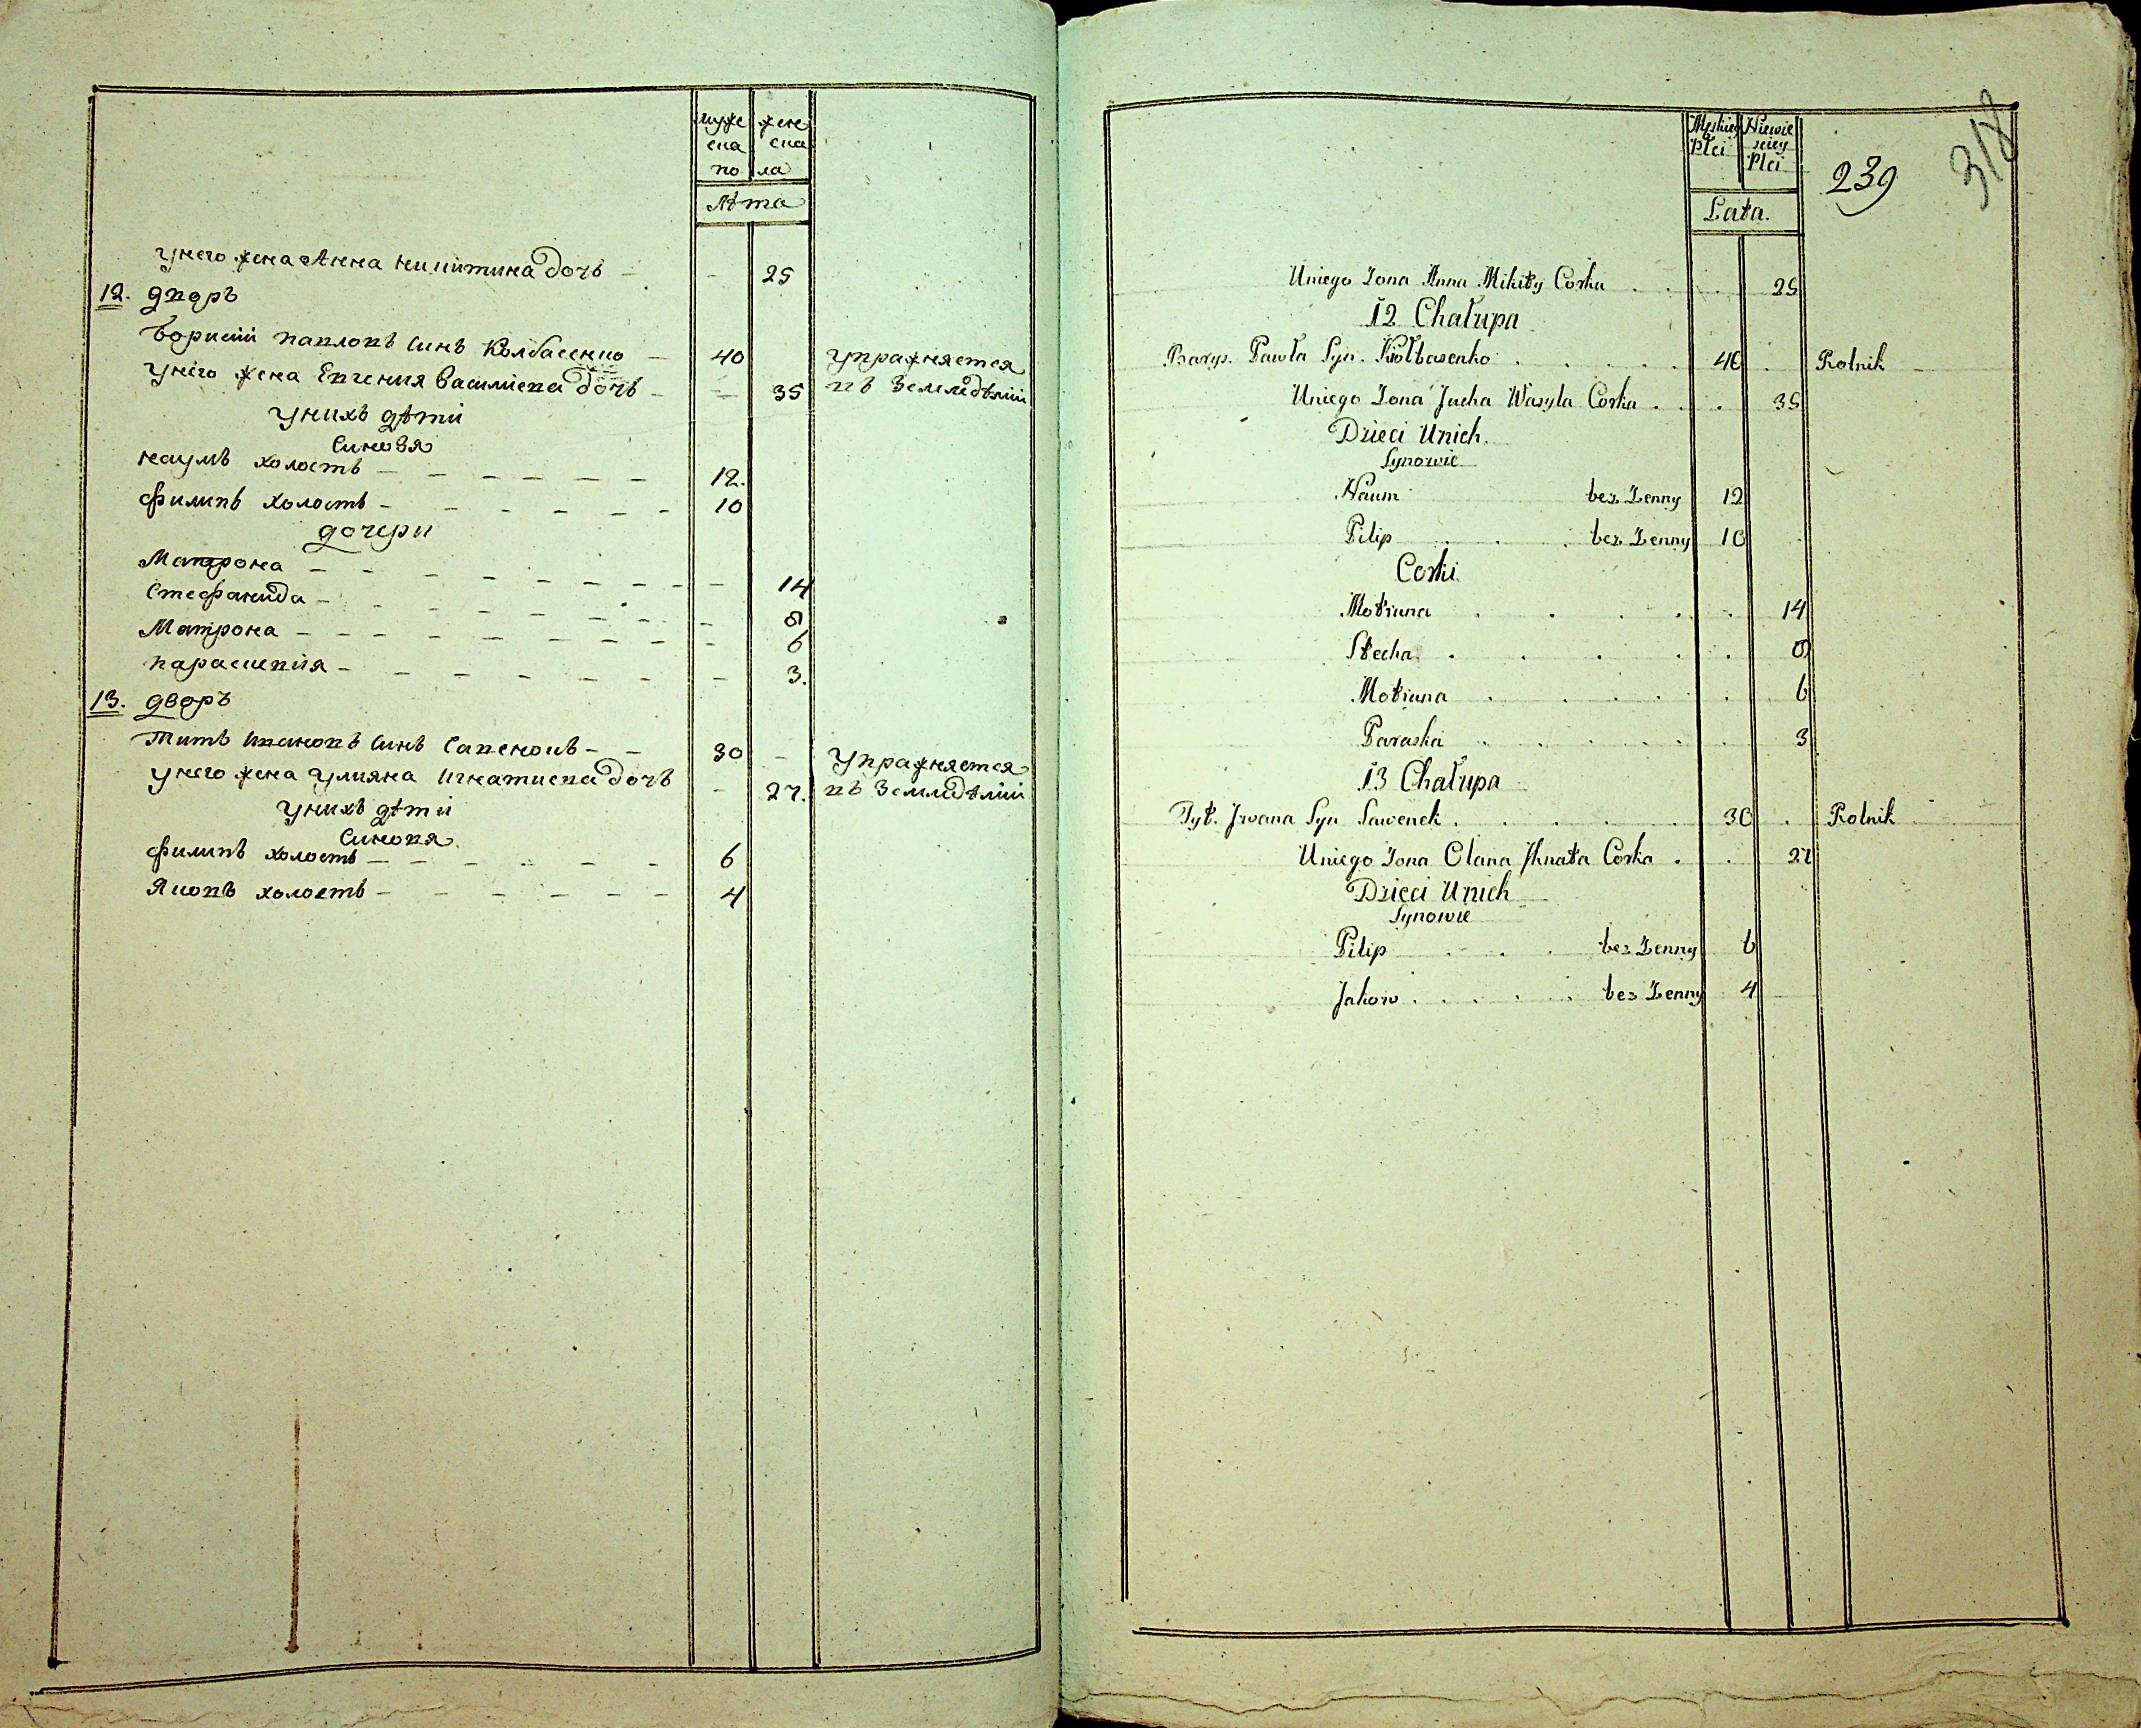 муже жене
ска ска
по ла
Лѣта
унего жена Анна никитина дочь — - 25
12. дворъ
Борисъ павловъ синъ Колбасенко — 40 упражняется
унего жена Евгения василиева дочь — 35 въ Земледѣлии
унихъ дѣти
синовя
наумъ холостъ — 12.
филипъ холостъ — 10
дочери
Матрона — 14
Стефанида — 8
Матрона — 6
параскевия — 3.
13. дворъ
Титъ ивановъ синъ Савенокъ — 30 — упражняется
унего жена улияна игнатиева дочь - 27. въ Земледѣлии
унихъ дѣти
синовя
филипъ холостъ — 6
Яковъ холостъ — 4
Męskiey Niewie
Płci sciey
Płci
239
318
Lata.
Uniego Zona Anna Mikity Corka . . . 25
12 Chałupa
Barys. Pawła Syn. Kołbasenko . . . 40 . Rolnik
Uniego Zona Jucha Wasyla Corka . . . 35
Dzieci Unich.
Synowie
Naum bez Zenny 12
Pilip . . . bez Zenny 10
Corki
Motruna . . . 14
Stecha . . . 8
Motruna . . . 6
Paraska . . . 3
13 Chałupa
Tyt. Jwana Syn Sawenek . . . 30 . Rolnik
Uniego Zona Olana Jhnata Corka . . 27
Dzieci Unich
Synowie
Pilip . . . bez Zenny 6
Jakow . . . bez Zenny 4